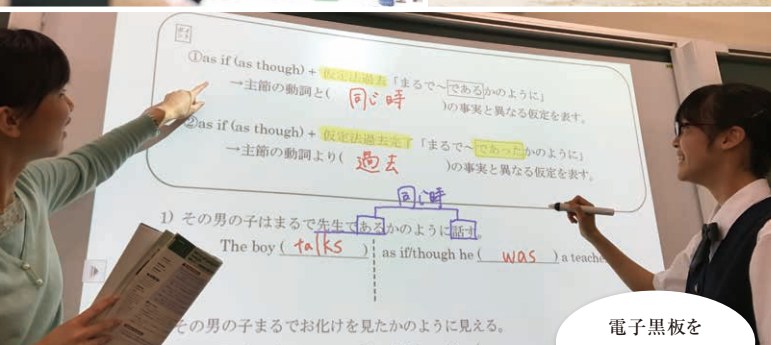 ポイント
①as if (as though) + 仮定法過去「まるで~であるかのように」
→主節の動詞と( 同じ時 )の事実と異なる仮定を表す。
②as if (as though) + 仮定法過去完了「まるで~であったかのように」
→主節の動詞より( 過去 )の事実と異なる仮定を表す。
同じ時
1) その男の子はまるで先生であるかのように話す。
The boy ( talks ) as if/though he ( was ) a teache
その男の子まるでお化けを見たかのように見える。
電子黒板を